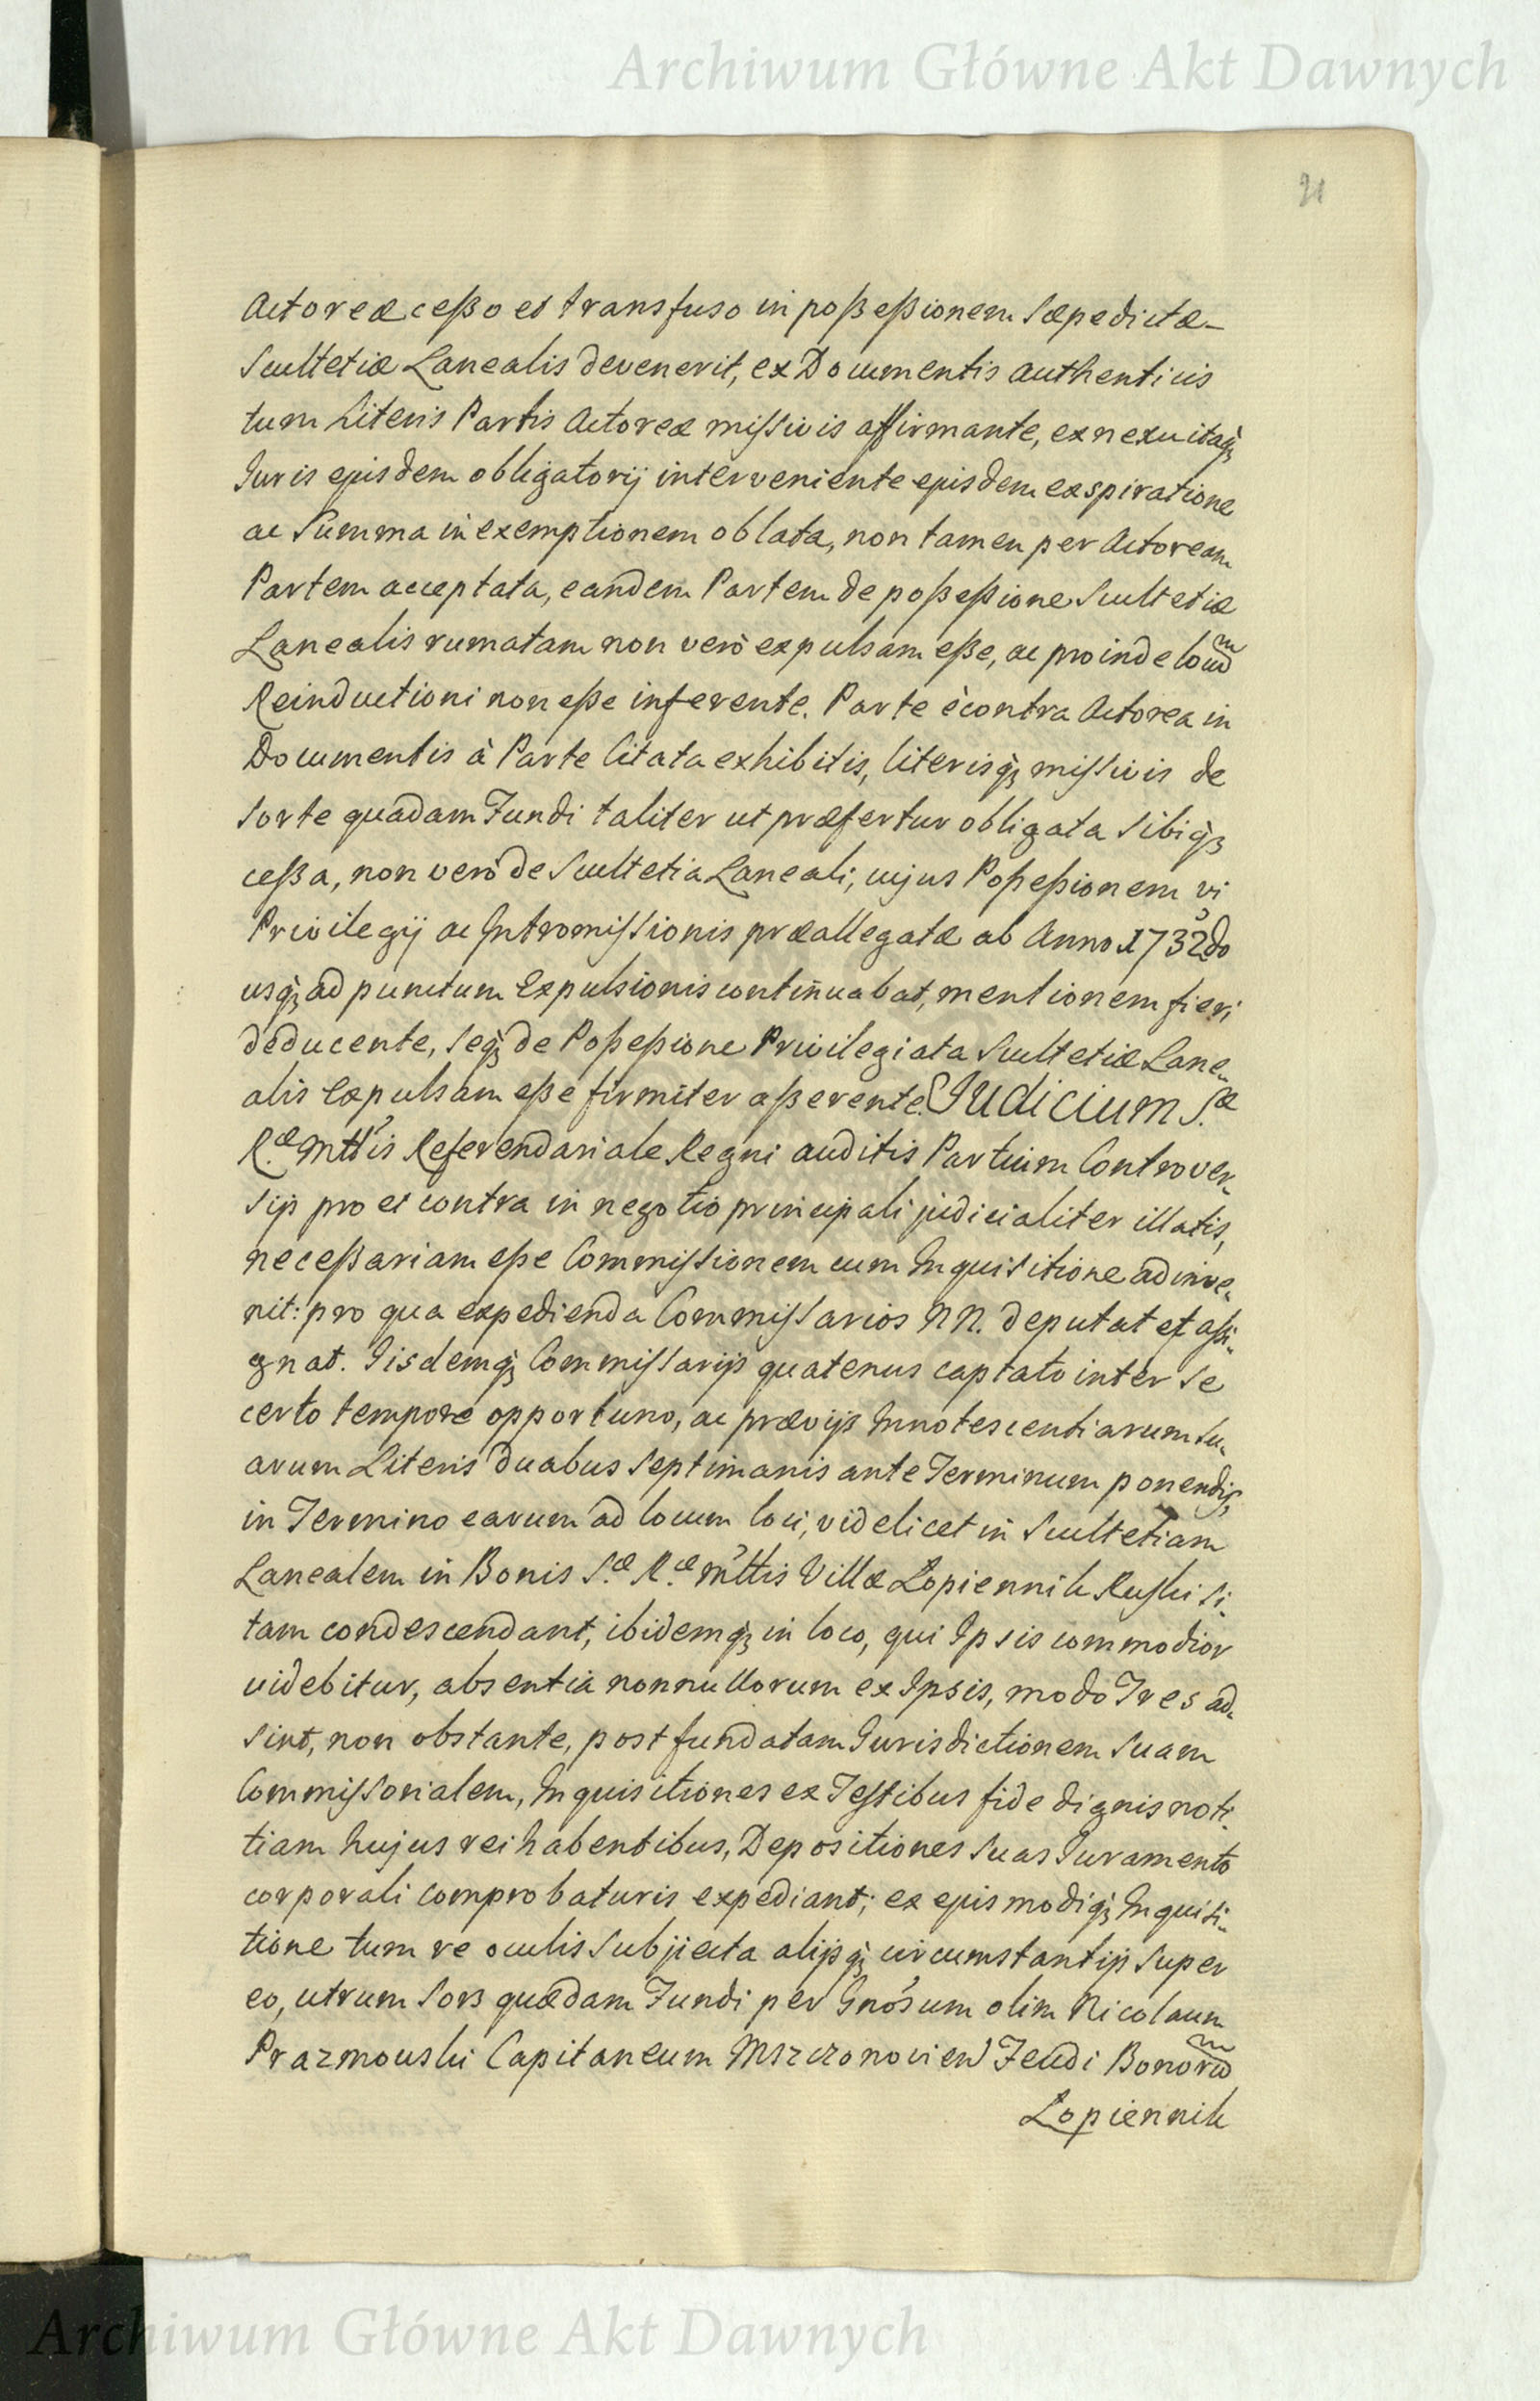 Archiwum Główne Akt Dawnych
21
Actoreæ cesso et transfuso in possessionem Sæpedictæ
Scultetiæ Lanealis devenerit, ex Documentis authenticis
tum Literis Partis Actoreæ missivis affirmante, ex nexu itaq;
Juris ejusdem obligatorij interveniente ejusdem exspiratione
ac Summa in exemptionem oblata, non tamen per Actoream
Partem acceptata, eandem Partem de possessione Scultetiæ
Lanealis rumatam non verò expulsam esse, ac proinde locum
Reinductioni non esse inferente. Parte è contra Actorea in
Documentis à Parte Citata exhibitis, literisq; missivis de
Sorte quadam Fundi taliter ut præfertur obligata Sibiq;
cessa, non verò de Scultetia Laneali, cujus Possessionem vi
Privilegij ac Intromissionis præallegatæ ab Anno 1732do
usq; ad punctum Expulsionis continuabat, mentionem fieri
deducente, Seq; de Possessione Privilegiata Scultetiæ Lane-
alis Expulsam esse firmiter asserente. Judicium S.æ
R.æ Mttis Referendariale Regni auditis Partium Controver-
sijs pro et contra in negotio principali judicialiter illatis,
necessariam esse Commissionem cum Inquisitione adinve-
nit: pro qua expedienda Commissarios NN. deputat et assi-
gnat. Iisdemq; Commissarijs quatenus captato inter Se
certo tempore opportuno, ac prævijs Innotescentiarum Su-
arum Literis duabus Septimanis ante Terminum ponendis,
in Termino earum ad locum loci, videlicet in Scultetiam
Lanealem in Bonis S.æ R.æ Mttis Villæ Łopiennik Ruski Si-
tam condescendant, ibidemq; in loco, qui Ipsis commodior
videbitur, absentia nonnullorum ex Ipsis, modo Tres ad-
sint, non obstante, post fundatam Jurisdictionem Suam
Commissorialem, Inquisitiones ex Testibus fide dignis noti-
tiam hujus rei habentibus, Depositiones Suas Juramento
corporali comprobaturis expediant; ex ejusmodiq; Inquisi-
tione tum re oculis Subjecta alijsq; circumstantijs Super
eo, utrum Sors quædam Fundi per Gnosum olim Nicolaum
Prazmouski Capitaneum Mszczonovien Feudi Bonorum
Łopiennik
Archiwum Główne Akt Dawnych